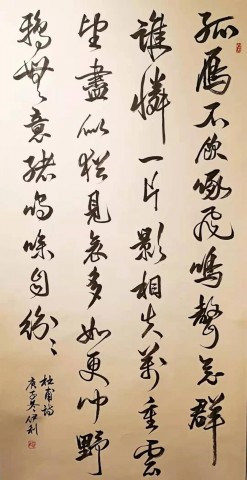 孤雁不飲啄飛鳴聲念群
誰憐一片影相失萬重雲
望盡似猶見哀多如更聞野
鴉無意緒鳴噪自紛〻
杜甫詩
庚子冬伊利